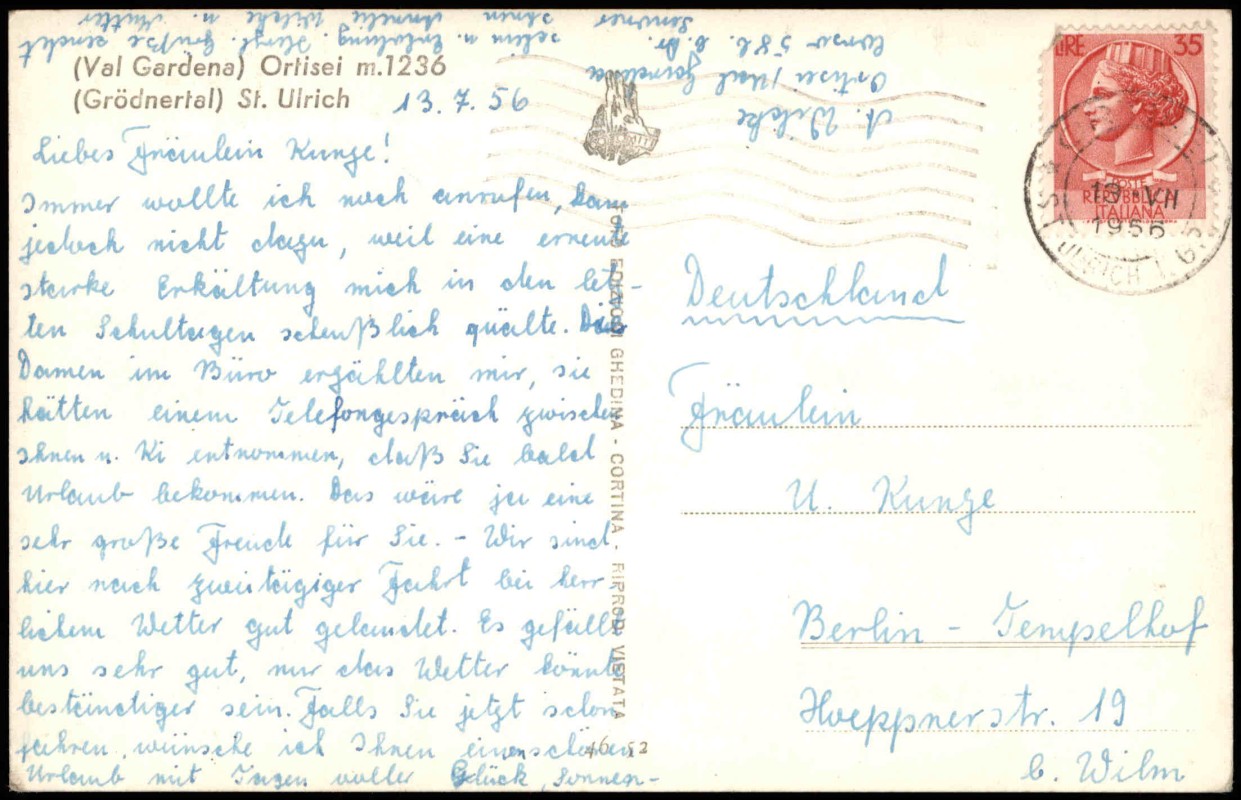 (Val Gardena) Ortisei m.1236
(Grödnertal) St. Ulrich 13.7.56
Liebes Fräulein Kunze!
Immer wollte ich noch anrufen, kam
jedoch nicht dazu, weil eine erneute
starke Erkältung mich in den letz-
ten Schultagen scheußlich quälte. Die
Damen im Büro erzählten mir, sie
hätten einem Telefongespräch zwischen
Ihnen u. Ki entnommen, daß Sie bald
Urlaub bekommen. Das wäre ja eine
sehr große Freude für Sie. - Wir sind
hier nach zweitägiger Fahrt bei herr
lichem Wetter gut gelandet. Es gefällt
uns sehr gut, nur das Wetter könnte
beständiger sein. Falls Sie jetzt schon
fahren, wünsche ich Ihnen einen schönen
Urlaub mit Tagen voller Glück, Sonnen-
schein u. Erholung. Herzl. Grüße sendet
Ihnen Annelie Wilcke u. Mutter
A. Wilcke
Ortisei / Val Gardena
Corso 58 b. Dr.
Senoner
FOTO EDIZIONI GHEDINA - CORTINA - RIPROD. VIETATA
46 52
LIRE 35
POSTE
REPUBBLICA
ITALIANA
13 VII
1956
Deutschland
Fräulein
U. Kunze
Berlin - Tempelhof
Hoeppnerstr. 19
b. Wilm